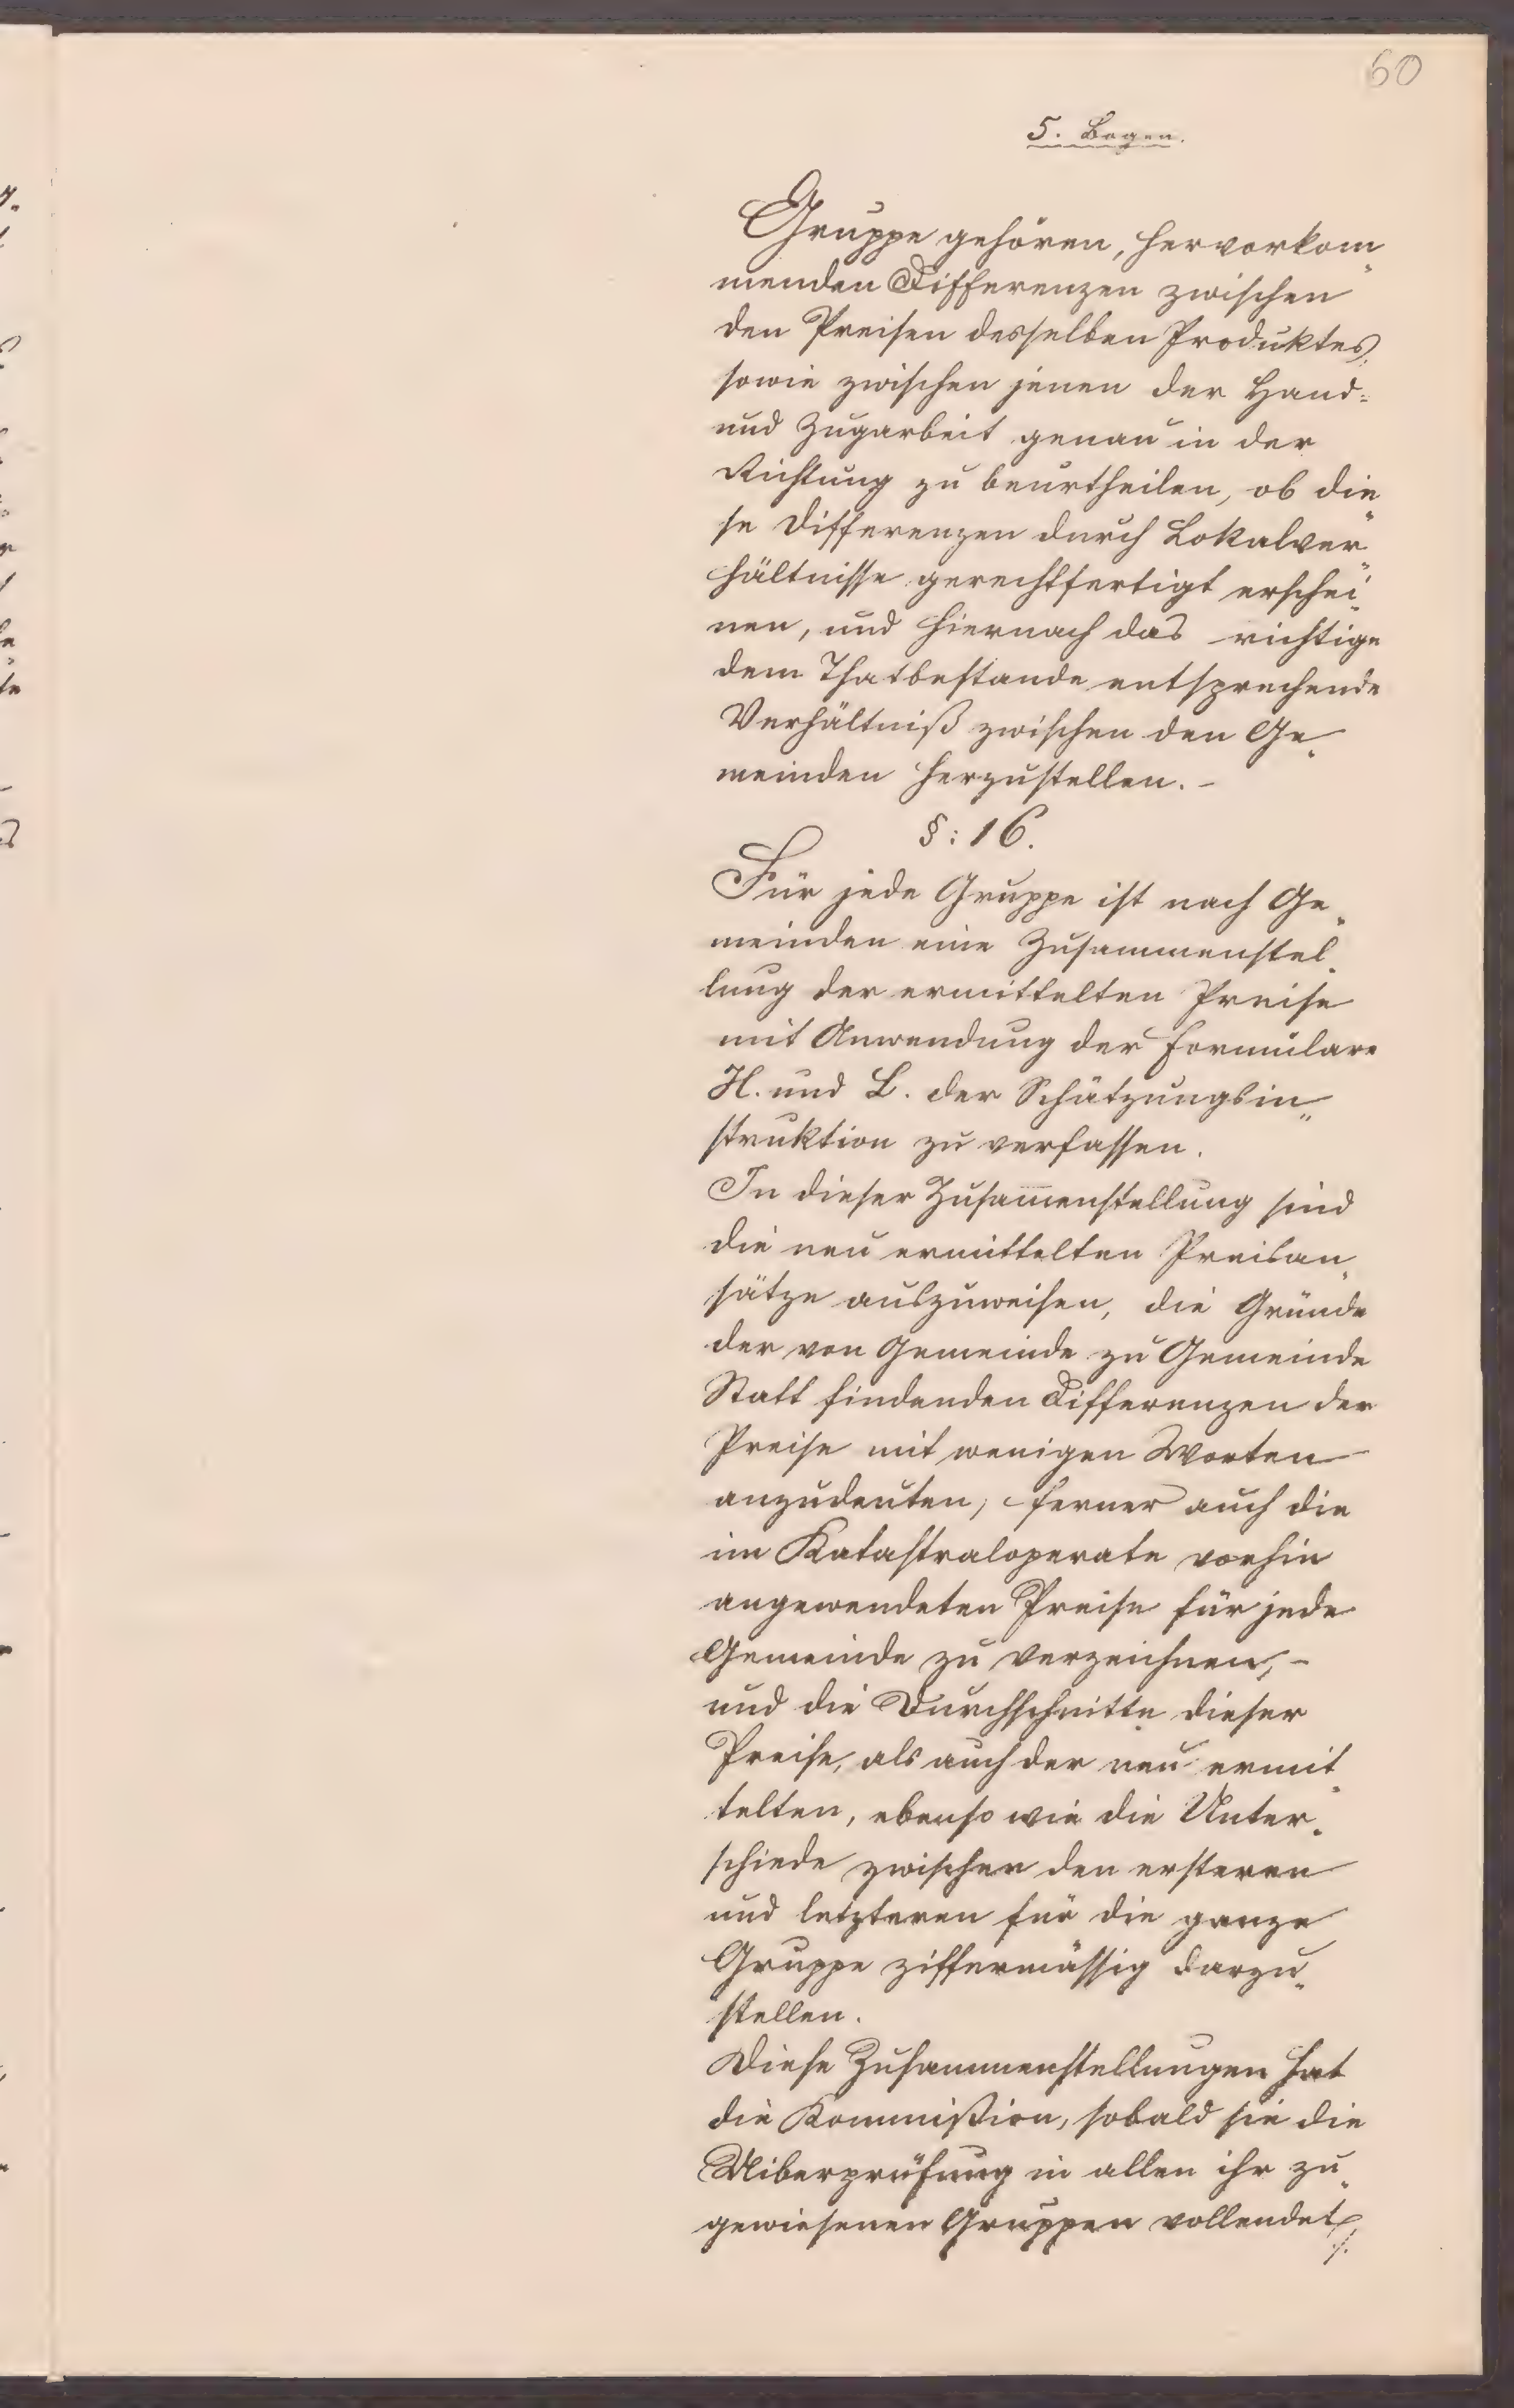 60
5. Bogen.
Gruppe gehören, hervorkom„
menden Differenzen zwischen
den Preisen desselben Produktes,
sowie zwischen jenen der Hand=
und Zugarbeit genau in der
Richtung zu beurtheilen, ob die„
se Differenzen durch Lokalver„
hältnisse gerechtfertigt erschei„
nen, und hiernach das richtige
dem Thatbestande entsprechende
Verhältniß zwischen den Ge„
meinden herzustellen. –
§: 16.
Für jede Gruppe ist nach Ge„
meinden eine Zusammenstel„
lung der ermittelten Preise
mit Anwendung der Formulare
H. und L. der Schätzungsin„
struktion zu verfassen.
In dieser Zusam̅enstellung sind
die neu ermittelten Preisan„
sätze auszuweisen, die Gründe
der von Gemeinde zu Gemeinde
Statt findenden Differenzen der
Preise mit wenigen Worten
anzudeuten, ferner auch die
im Katastraloperate vorhin
angewendeten Preise für jede
Gemeinde zu verzeichnen, –
und die Durchschnitte dieser
Preise, als auch der neu ermit„
telten, ebenso wie die Unter„
schiede zwischen den ersteren
und letzteren für die ganze
Gruppe ziffermässig darzu„
stellen.
Diese Zusammenstellungen hat
die Kommißion, sobald sie die
Uiberprüfung in allen ihr zu„
gewiesenen Gruppen vollendet
./.